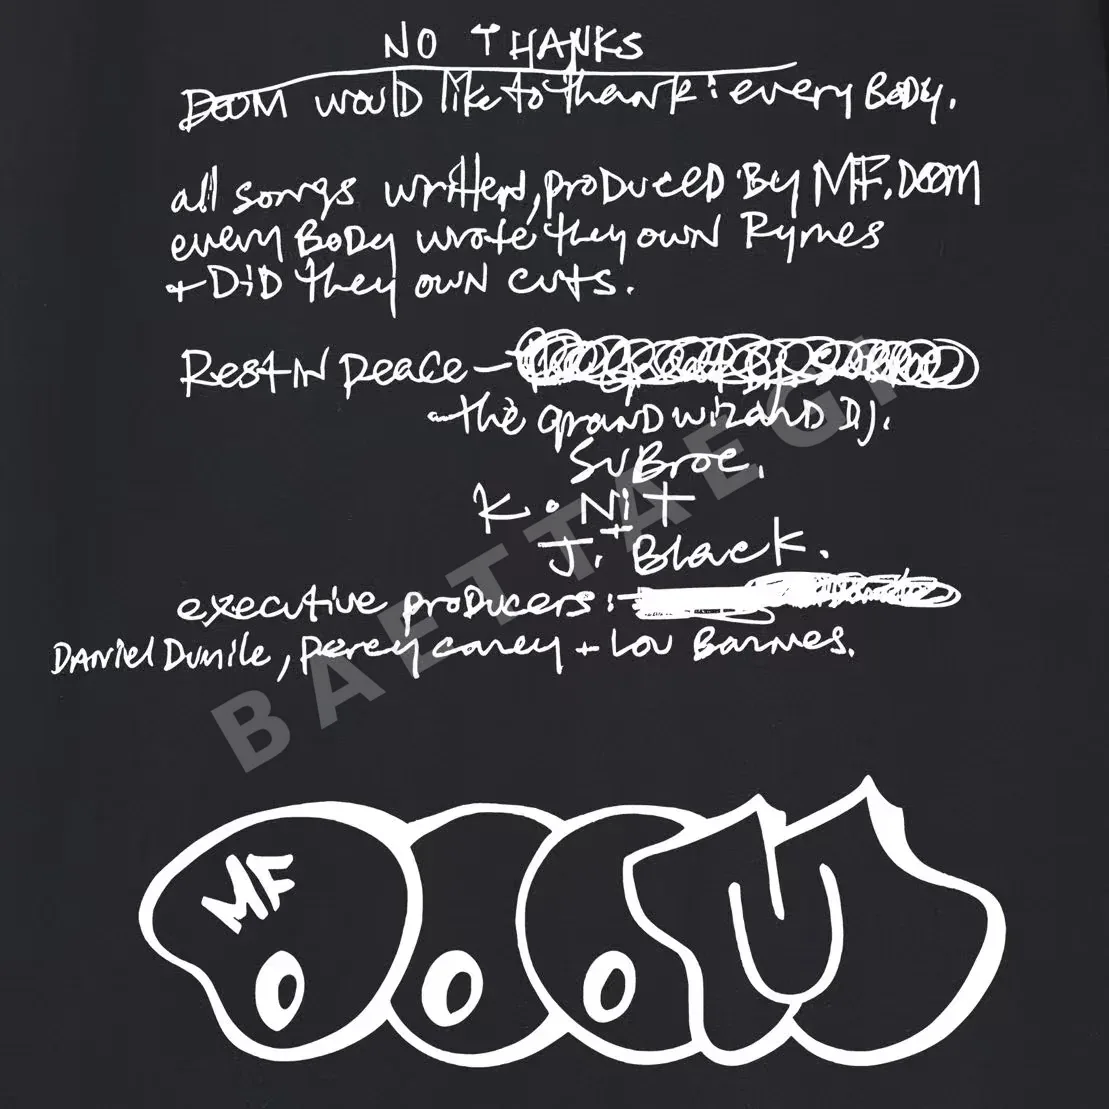 NO THANKS
DOOM WOULD like to thank: every BODy.
all songs written, proDuceD By MF. DOOM
every BODy wrote they own Rymes
+ DiD they own cuts.
Rest iN peace –
–the granD wizarD Dj.
SuBroc.
K.NiT
+
J. Black.
executive proDucers:
DANiel Dumile, percy carey + Lou Barnes.
BAETTAEGI
MF
DOOM